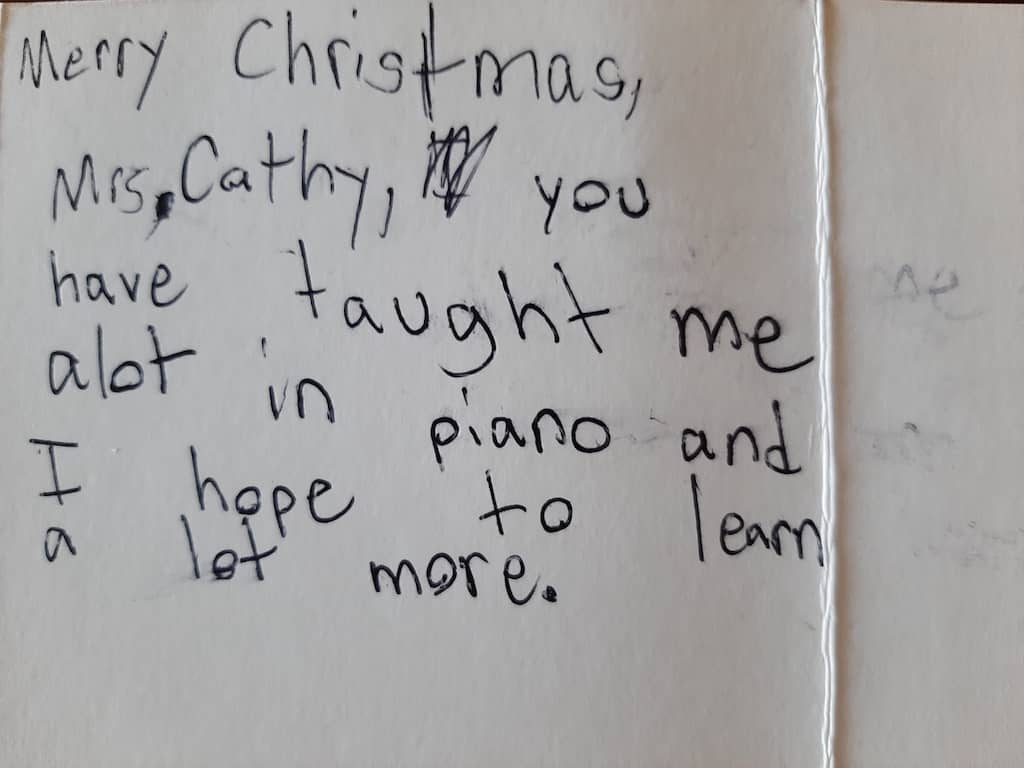 Merry Christmas,
Mrs. Cathy, you
have taught me
alot in piano and
I hope to learn
a lot more.